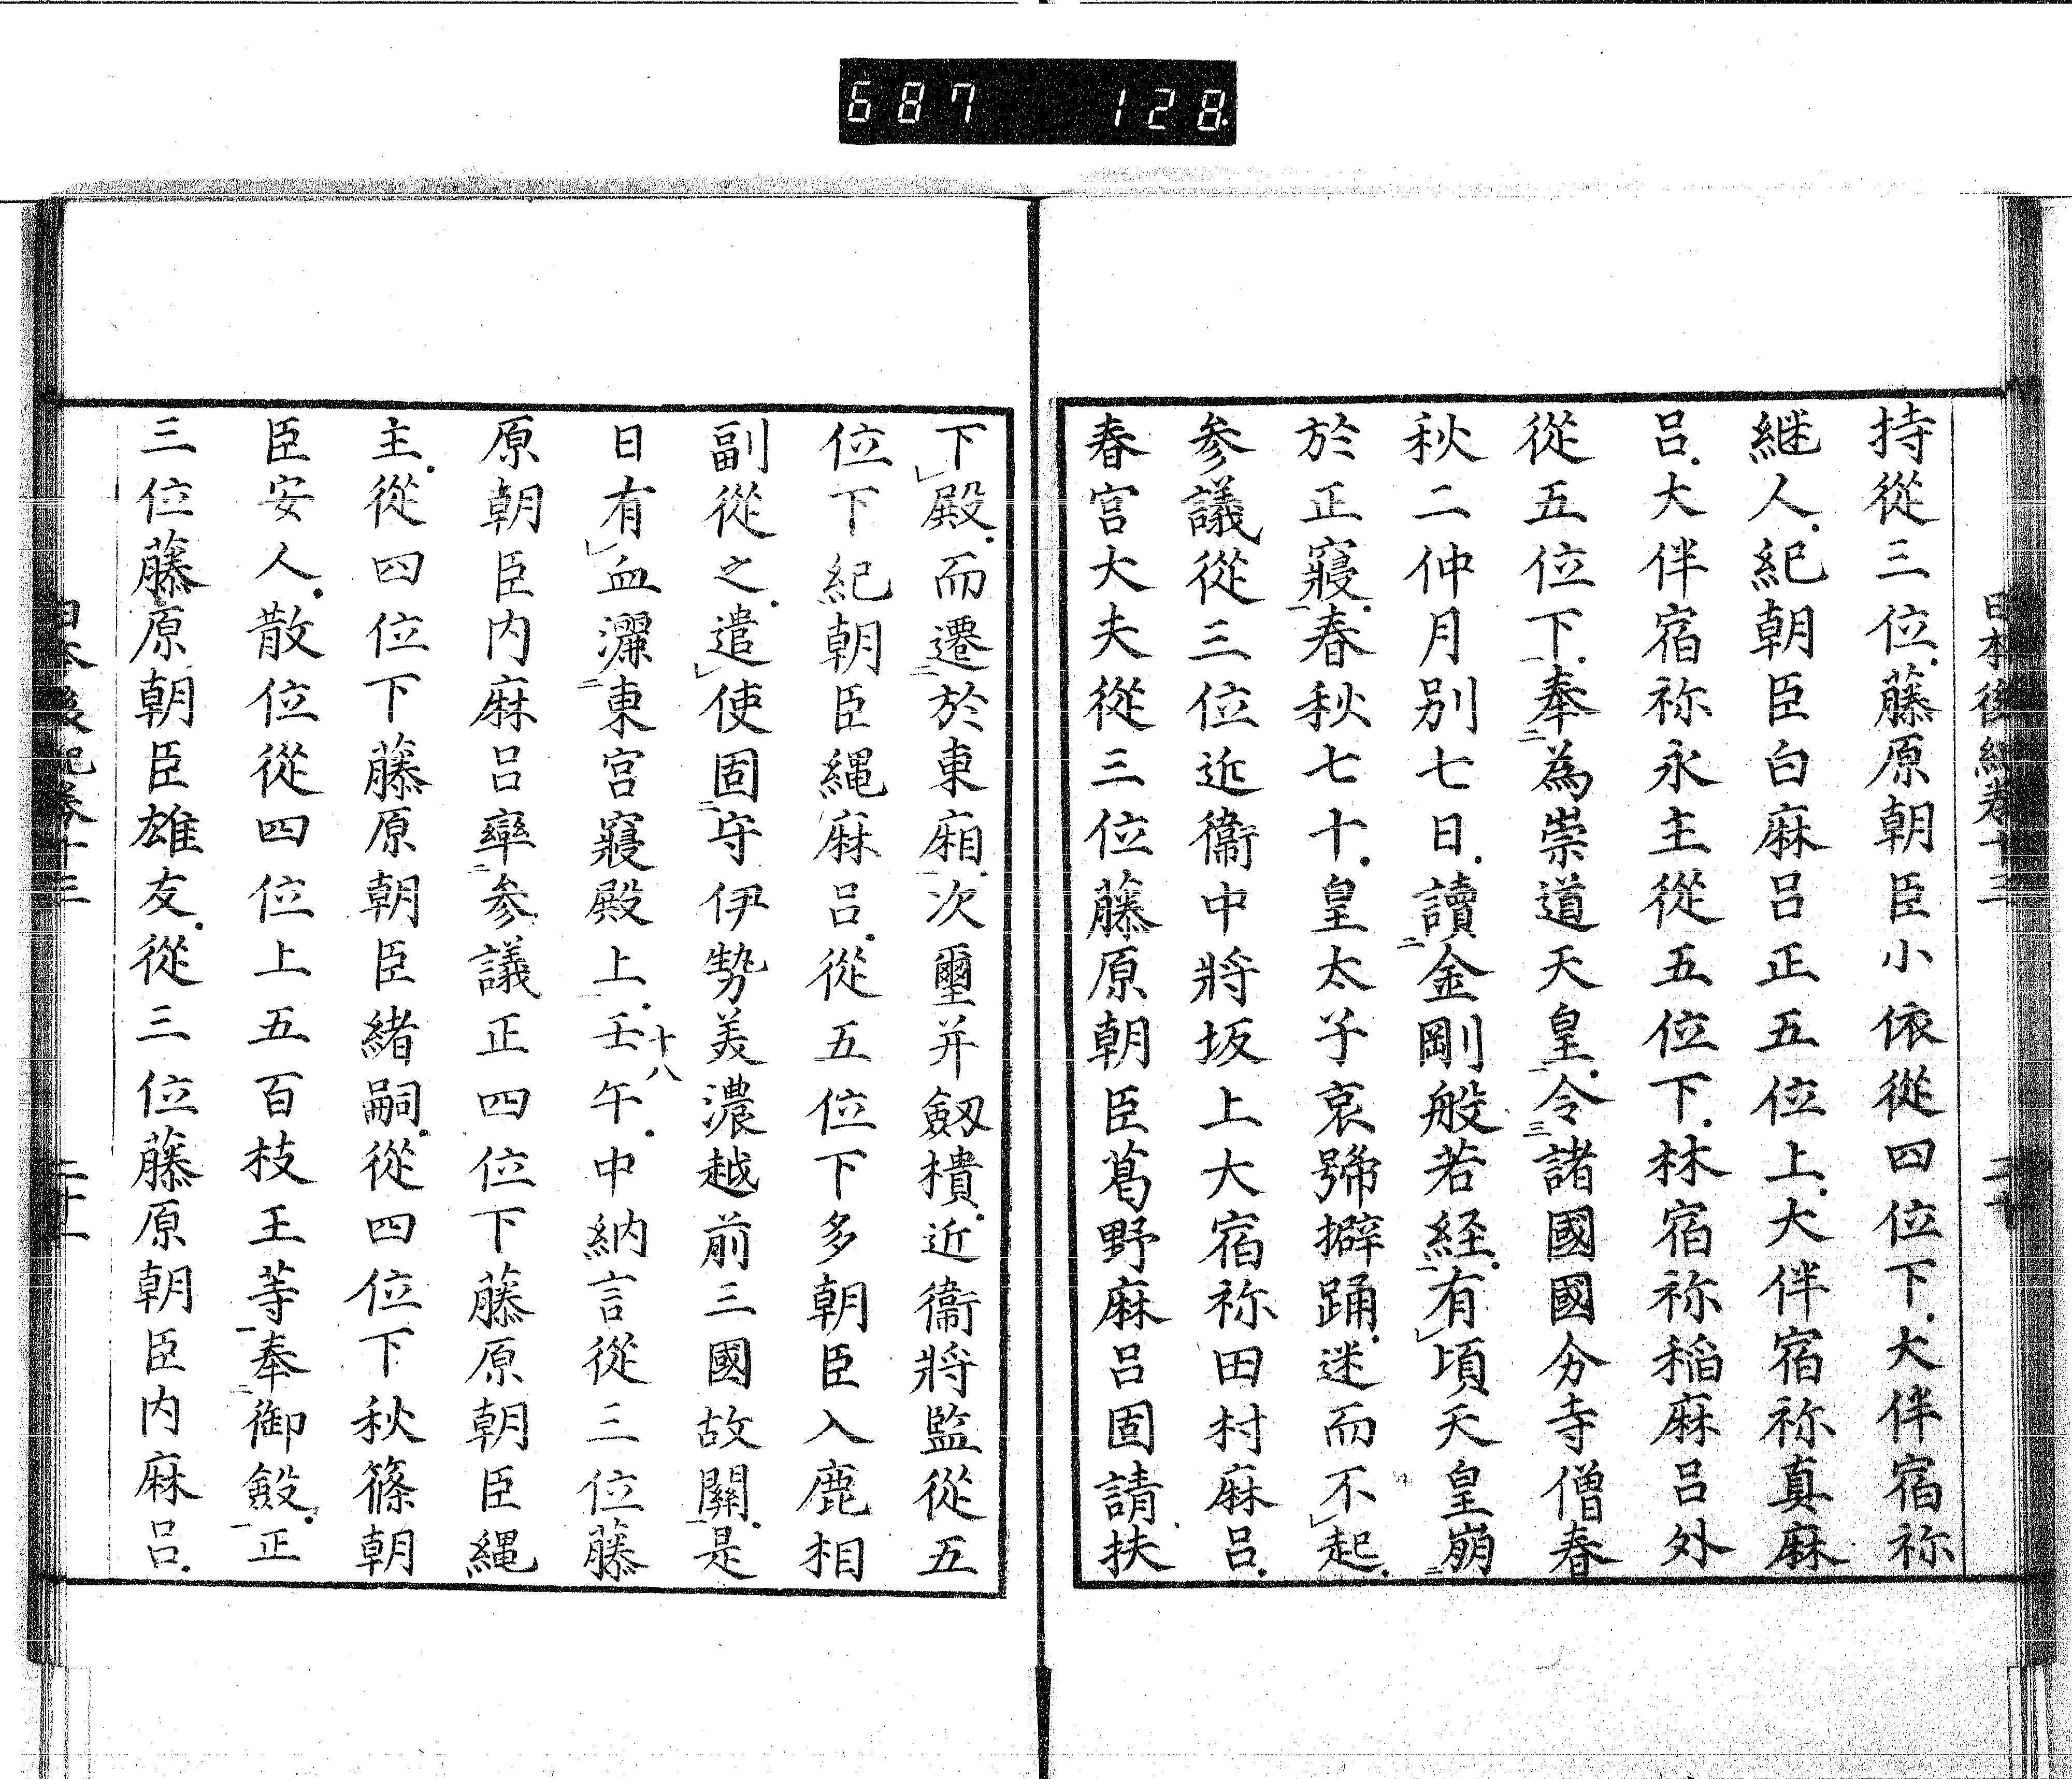 687 128.
日本後紀卷十三 二十
持從三位藤原朝臣小依從四位下大伴宿祢
継人紀朝臣白麻呂正五位上大伴宿祢真麻
呂大伴宿祢永主從五位下林宿祢稲麻呂外
從五位下奉為崇道天皇令諸國國分寺僧春
秋二仲月別七日讀金剛般若経有頃天皇崩
於正寢春秋七十皇太子哀號擗踊迷而不起
参議從三位近衞中將坂上大宿祢田村麻呂
春宮大夫從三位藤原朝臣葛野麻呂固請扶
下殿而遷於東廂次璽并劔樻近衞將監從五
位下紀朝臣縄麻呂從五位下多朝臣入鹿相
副從之遣使固守伊勢美濃越前三國故關是
日有血灑東宮寢殿上壬午中納言從三位藤
十八
原朝臣内麻呂率参議正四位下藤原朝臣縄
主從四位下藤原朝臣緒嗣從四位下秋篠朝
臣安人散位從四位上五百枝王等奉御斂正
三位藤原朝臣雄友從三位藤原朝臣内麻呂
日本後紀卷十三